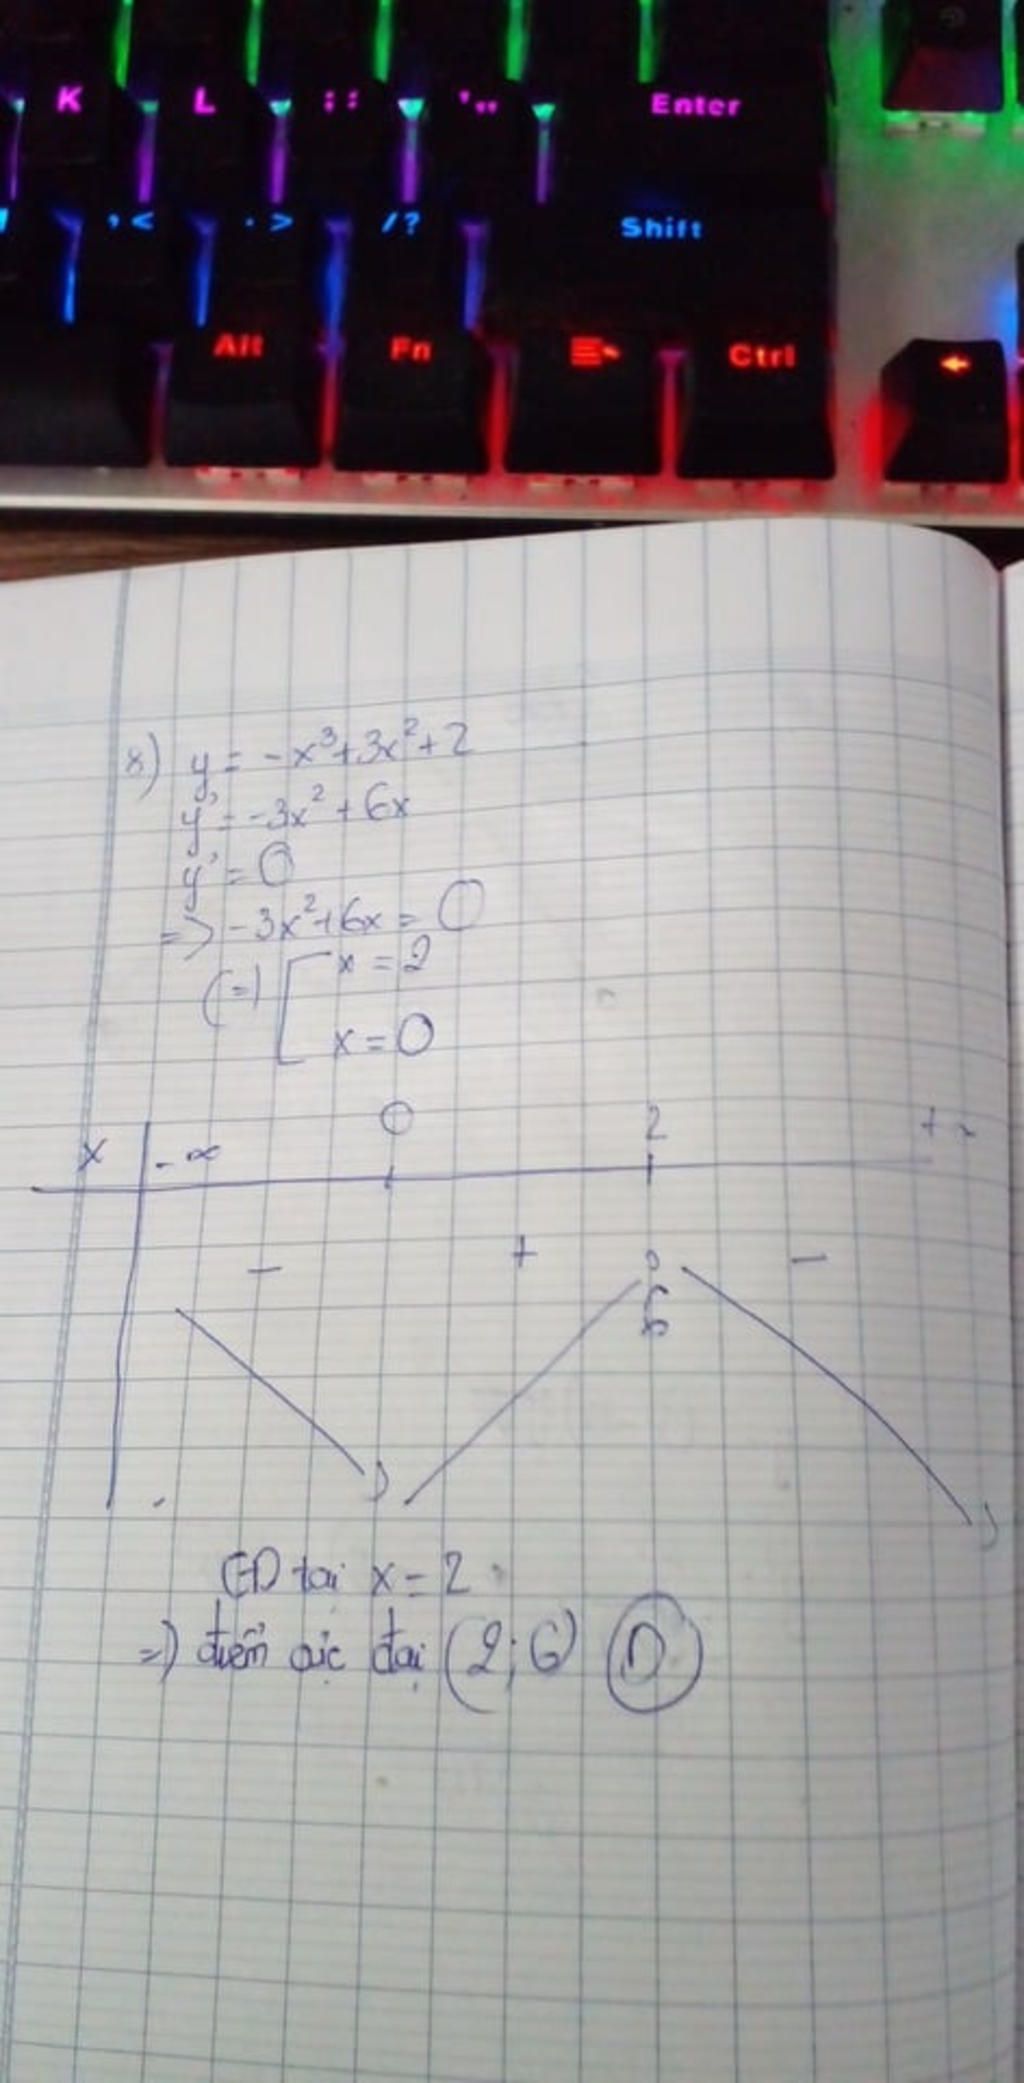 K L ; : ' ,, Enter
, < . > / ? Shift
Alt Fn Ctrl
8) y = -x³ + 3x² + 2
y' = -3x² + 6x
y' = 0
=> -3x² + 6x = 0
(=) [ x = 2
x = 0
x -∞ 0 2 +∞
- + 0 -
6
CĐ tại x = 2
=) điểm cực đại (2; 6) D